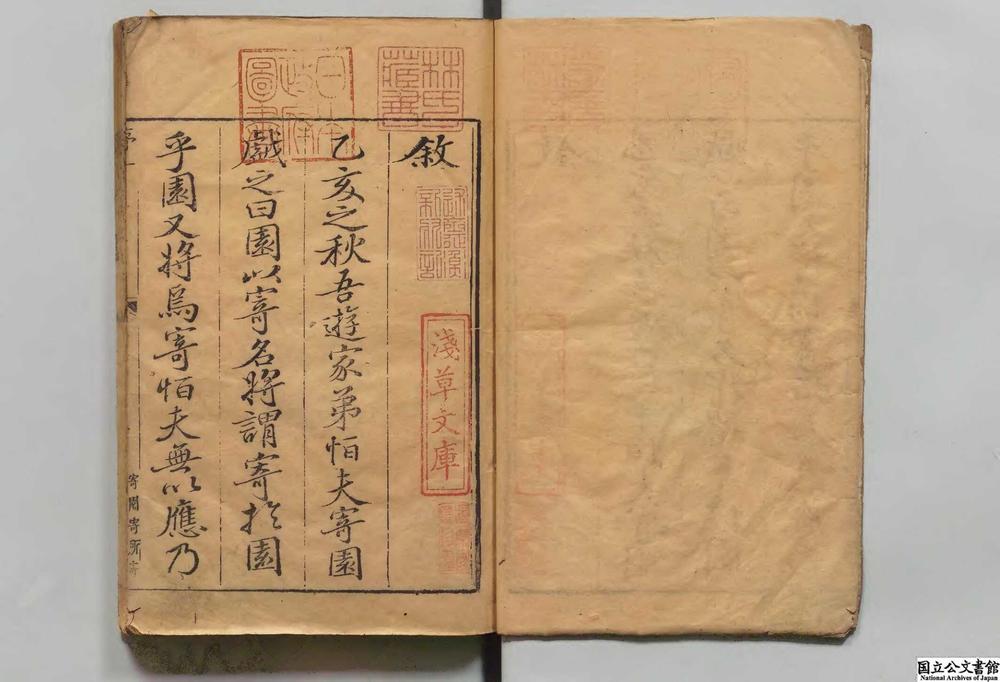 林氏藏書
日本政府圖書
敘
淺草文庫
乙亥之秋吾遊家弟恒夫寄園
戲之曰園以寄名將謂寄扵園
乎園又將爲寄恒夫無以應乃
寄園寄所寄
国立公文書館
National Archives of Japan